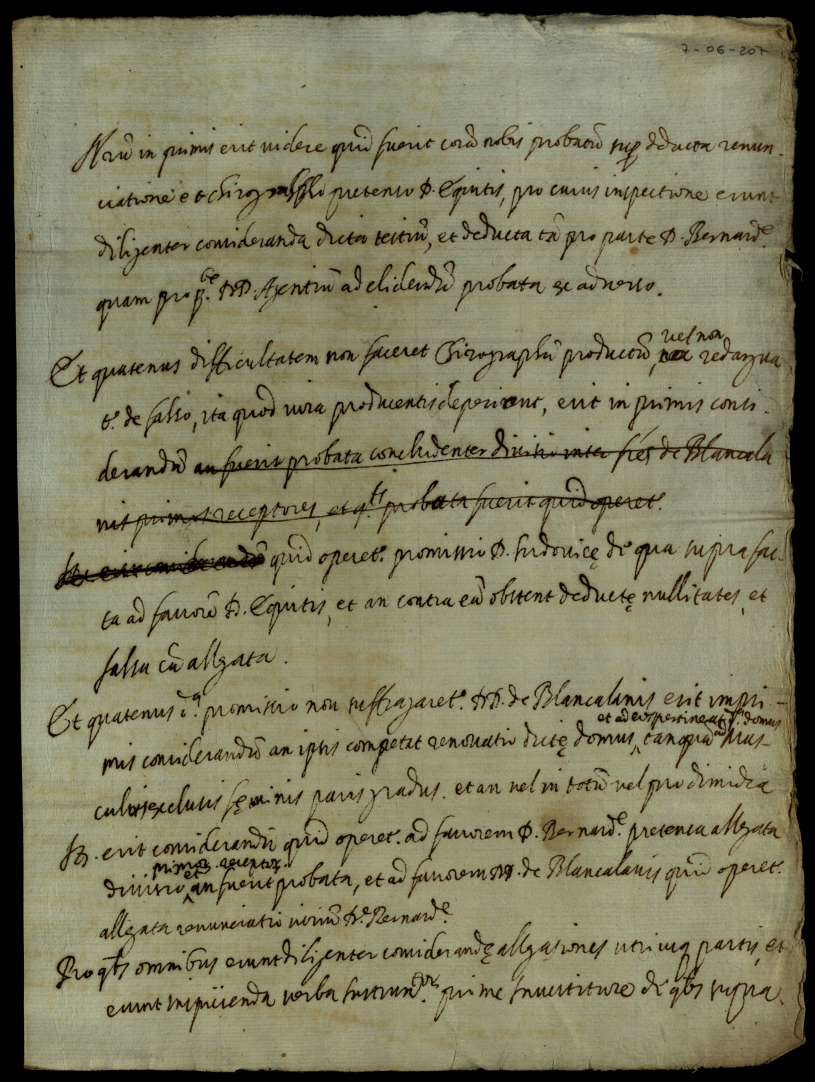 7-06-207
in primis erit videre quid fuerit corã nobis probatũ sup deducta renun-
ciatione et chirographo pretenso D. Equitis, pro cuius inspectione erunt
diligenter consideranda dicta testiũ, et deducta tã pro parte D. Bernard.e
quam pro p.te DD. Agentiũ ad elidendũ probata ex adverso.
Et quatenus difficultatem non faceret Chirographũ productũ, vel non redargua
t.r de falso, ita quod iura producentis deperirent, erit in primis consi-
derandũ an fuerit probata concludenter divisio inter fr̃es de Blancala
nis primos receptores, et q.ts probata fuerit quid operet.r
It. erit considerandũ quid operet.r promissio D. Ludovicę de qua supra fac-
ta ad favorẽ D. Equitis, et an contra eã obstent deductę nullitates, et
falsa cã allgata.
Et quatenus promissio non suffragaret.r DD. de Blancalanis erit in pri-
et ad eos pertineat domus
mis considerandũ an ipsis competat renovatio dictę domus, tanquã ad Mas-
culos exclusis fęminis paris gradus. et an vel in totũ vel pro dimidia
It. erit considerandũ quid operet.r ad favorem D. Bernard.e pretensa allgata
primor. receptor.
divisio et an fuerit probata, et ad favorem DD. de Blancalanis quid operet.r
allgata renunciatio iuriũ D.e Bernard.e
Pro q̃bs omnibus erunt diligenter considerandę allgationes utriusq partis, et
erunt inspicienda verba Instrum.tor. prime Investiture de q̃bs supra.